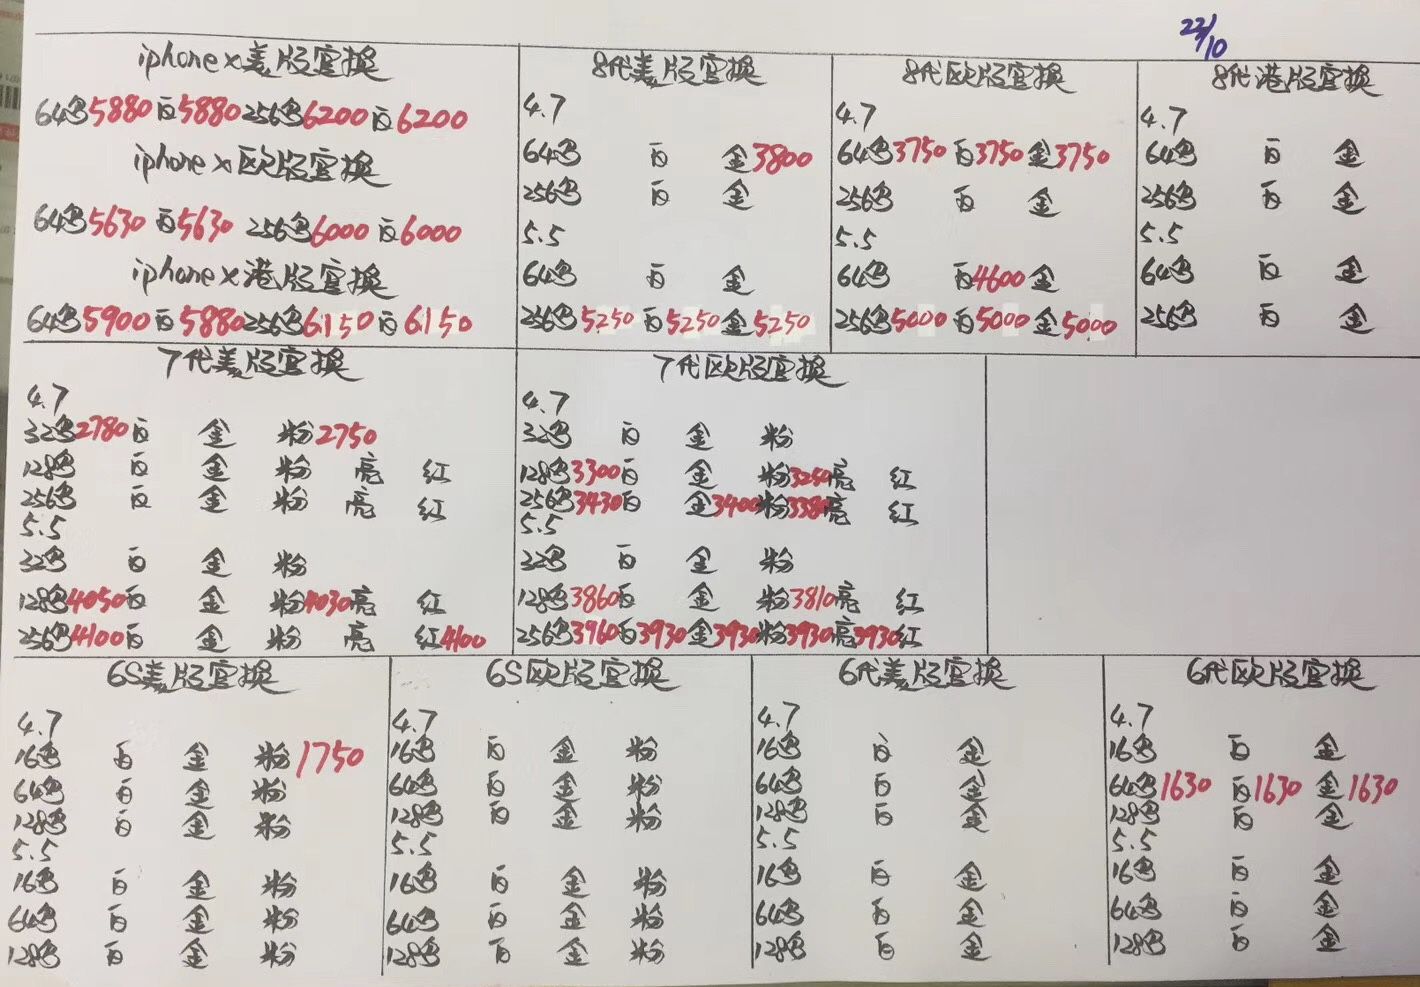 22/10
iphone x美版官换
64黑5880白5880 256黑6200白6200
iphone x欧版官换
64黑5630白5630 256黑6000白6000
iphone x港版官换
64黑5900白5880 256黑6150白6150
8代美版官换
4.7
64黑 白 金3800
256黑 白 金
5.5
64黑 白 金
256黑5250白5250金5250
8代欧版官换
4.7
64黑3750白3750金3750
256黑 白 金
5.5
64黑 白4600金
256黑5000白5000金5000
8代港版官换
4.7
64黑 白 金
256黑 白 金
5.5
64黑 白 金
256黑 白 金
7代美版官换
4.7
32黑2780白 金 粉2750
128黑 白 金 粉 亮 红
256黑 白 金 粉 亮 红
5.5
32黑 白 金 粉
128黑4050白 金 粉4030亮 红
256黑4100白 金 粉 亮 红4100
7代欧版官换
4.7
32黑 白 金 粉
128黑3300白 金 粉3250亮 红
256黑3430白 金3400粉3380亮 红
5.5
32黑 白 金 粉
128黑3860白 金 粉3810亮 红
256黑3960白3930金3930粉3930亮3930红
6S美版官换
4.7
16黑 白 金 粉1750
64黑 白 金 粉
128黑 白 金 粉
5.5
16黑 白 金 粉
64黑 白 金 粉
128黑 白 金 粉
6S欧版官换
4.7
16黑 白 金 粉
64黑 白 金 粉
128黑 白 金 粉
5.5
16黑 白 金 粉
64黑 白 金 粉
128黑 白 金 粉
6代美版官换
4.7
16黑 白 金
64黑 白 金
128黑 白 金
5.5
16黑 白 金
64黑 白 金
128黑 白 金
6代欧版官换
4.7
16黑 白 金
64黑1630白1630金1630
128黑 白 金
5.5
16黑 白 金
64黑 白 金
128黑 白 金